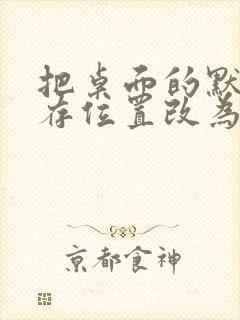 把桌面的默
存位置改为
京都食神